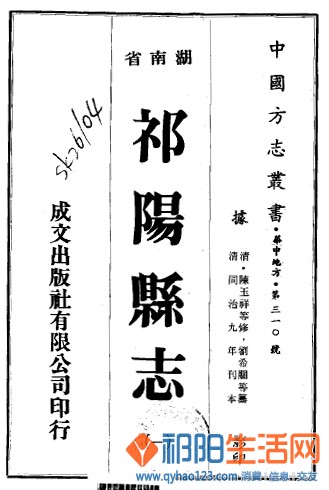 中國方志叢書·華中地方·第三一〇號
據
清·陳玉祥等修,劉希關等纂
清同治九年刊本
影印
湖南省
祁陽縣志
(一)
成文出版社有限公司印行
祁阳生活网
www.qyhao123.com 消费 信息 交友